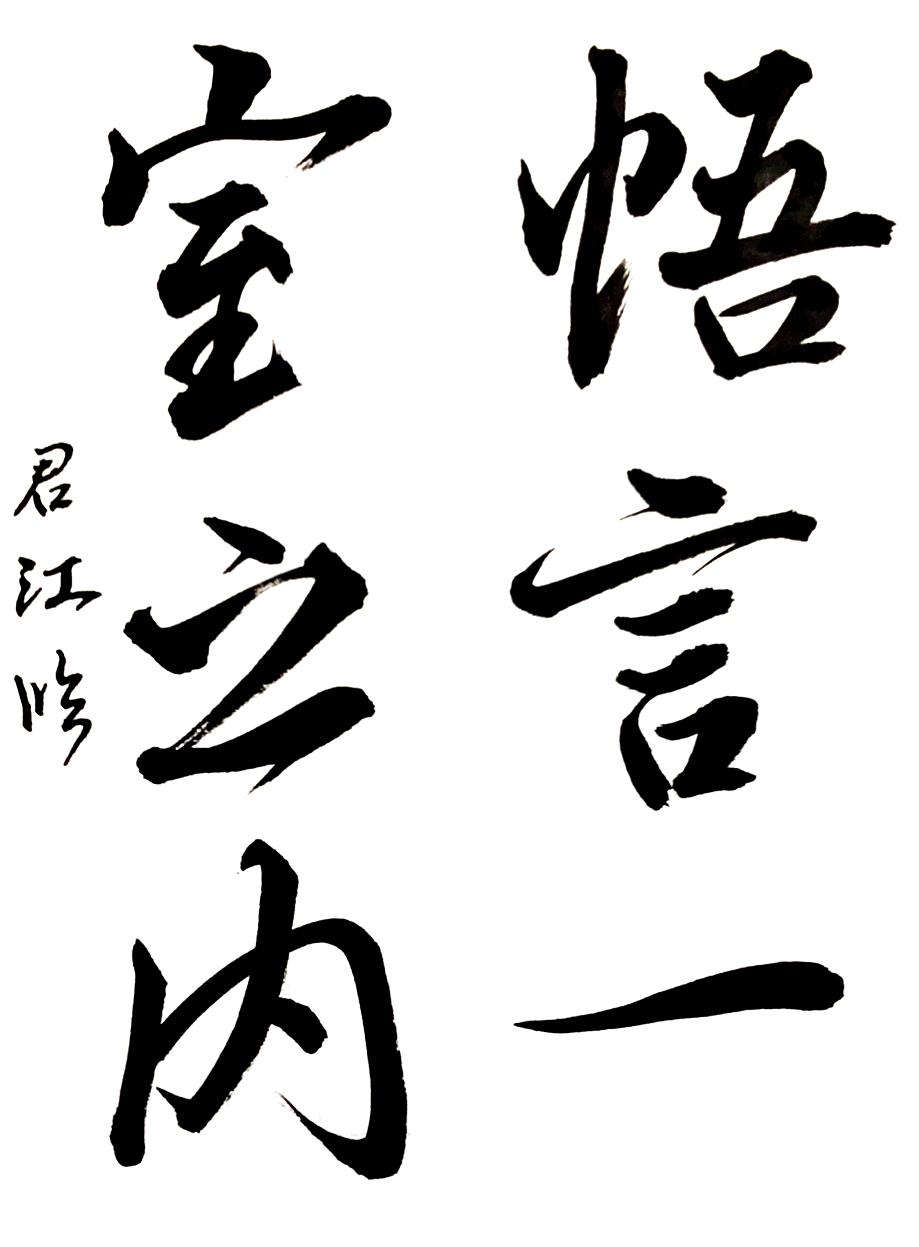 悟言一
室之内
君江临